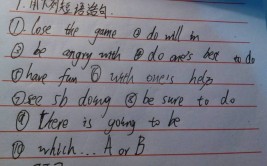 1. 用下列短语造句.
① lose the game ② do well in
③ be angry with ④ do one's best to do
⑤ have fun ⑥ with one's help
⑦ see sb doing ⑧ be sure to do
⑨ there is going to be
⑩ which... A or B